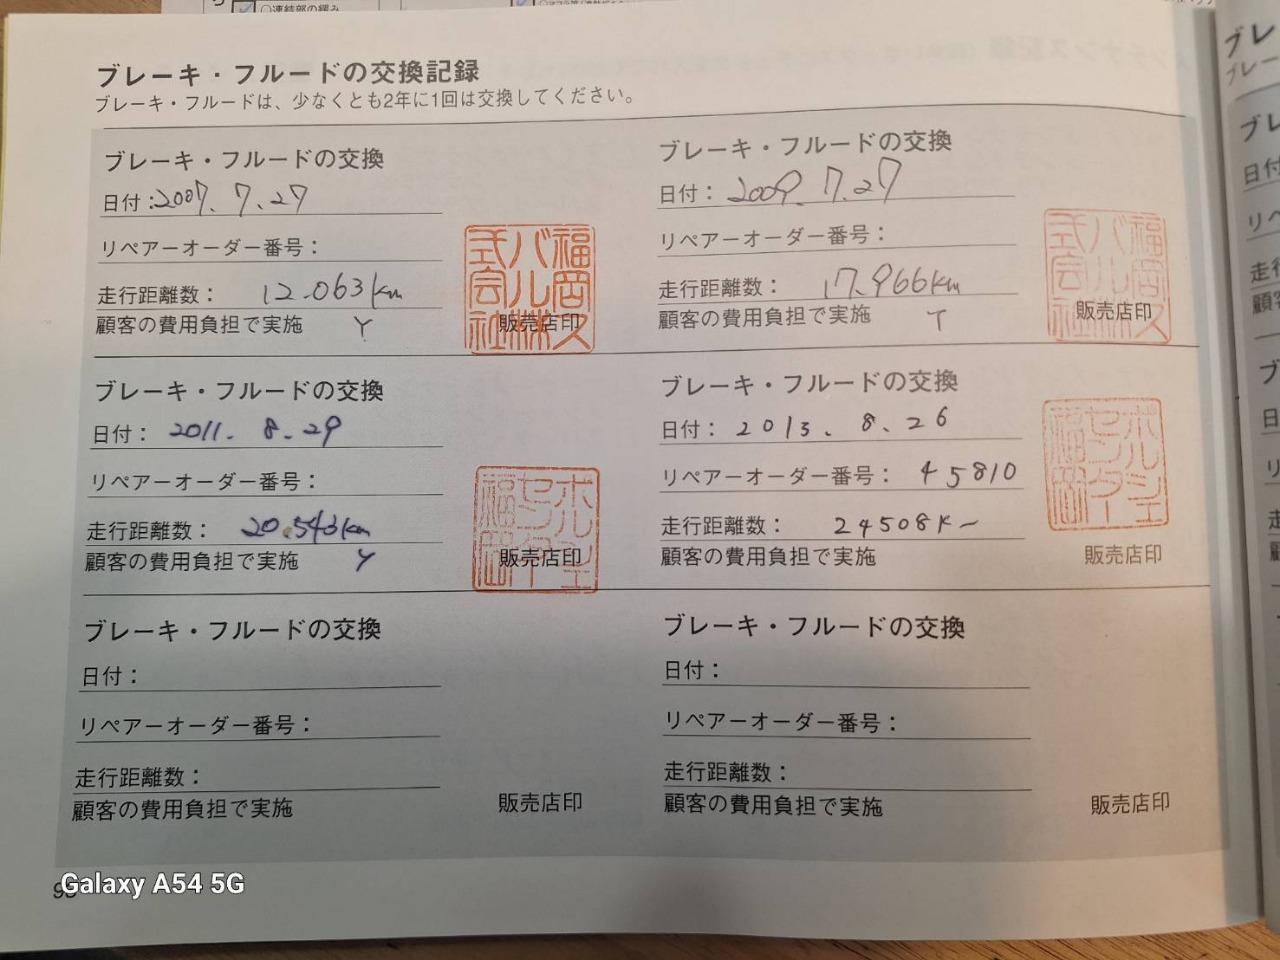 ○連結部の緩み
ブレーキ・フルードの交換記録
ブレーキ・フルードは、少なくとも2年に1回は交換してください。
ブレーキ・フルードの交換
日付:2007.7.27
リペアーオーダー番号:
走行距離数: 12.063km
顧客の費用負担で実施 Y
福岡スバル株式会社
販売店印
ブレーキ・フルードの交換
日付: 2009.7.27
リペアーオーダー番号:
走行距離数: 17.966km
顧客の費用負担で実施 T
福岡スバル株式会社
販売店印
ブレーキ・フルードの交換
日付: 2011. 8.29
リペアーオーダー番号:
走行距離数: 20.543km
顧客の費用負担で実施 Y
ポルシェセンター福岡
販売店印
ブレーキ・フルードの交換
日付: 2013. 8.26
リペアーオーダー番号: 45810
走行距離数: 24508K
顧客の費用負担で実施
ポルシェセンター福岡
販売店印
ブレーキ・フルードの交換
日付:
リペアーオーダー番号:
走行距離数:
顧客の費用負担で実施
販売店印
ブレーキ・フルードの交換
日付:
リペアーオーダー番号:
走行距離数:
顧客の費用負担で実施
販売店印
Galaxy A54 5G